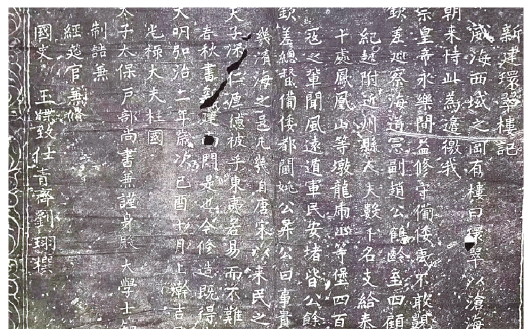 新建環翠樓記
威海西城之岡有樓曰環翠以滄海
朝来恃此為邊徼我
宗皇帝永樂間益修守備倭寇不敢
欽差巡察海道憲副趙公鶴齡至四顧
紀越附近州縣大夫數千名支給泰
十處鳳凰山等墩龍廟山等堡四百
寇之輩聞風遠遁軍民安堵皆公餘
欽差總督備倭都閫婉公昇公曰事貴
幾濱海之邑凡幾自唐宋以来民之
天子保仁厚德被乎東夷若易而不難
春秋書 問是也今修造既得
大明弘治二年歲次己酉七月上澣吉
光祿大夫柱國
太子太保戶部尚書兼謹身殿大學士知
制誥兼
經筵官兼修
國史 王 致仕青齊劉珝撰